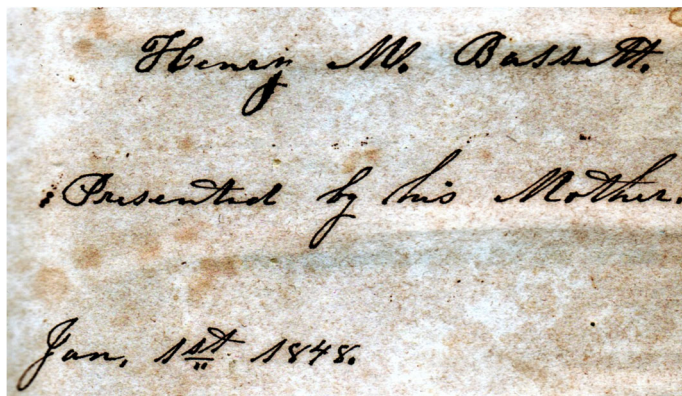 Henry M. Bassett.
Presented by his Mother.
Jan, 1st 1848.